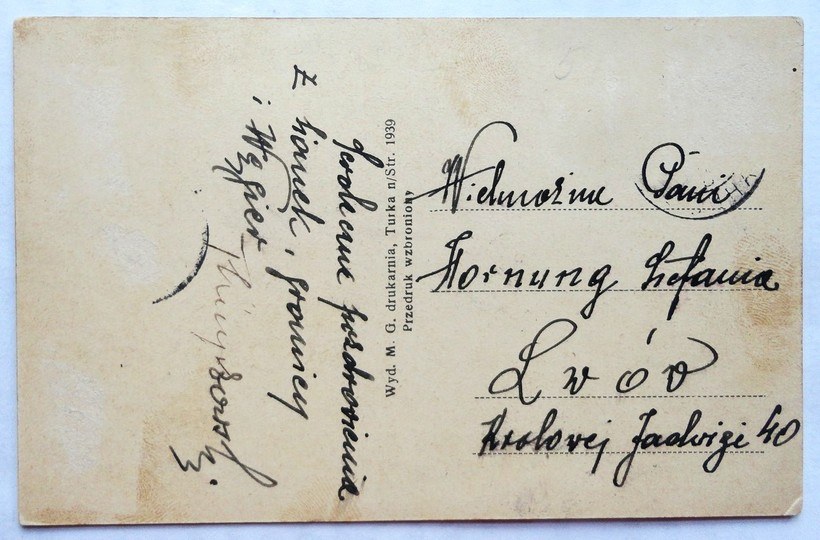 Serdeczne pozdrowienia
z Sianek, granicy
i Węgier
Wyd. M. G. drukarnia, Turka n/Str. 1939
Przedruk wzbroniony
Wielmożna Pani
Hornung Stefania
Lwów
Królowej Jadwigi 40